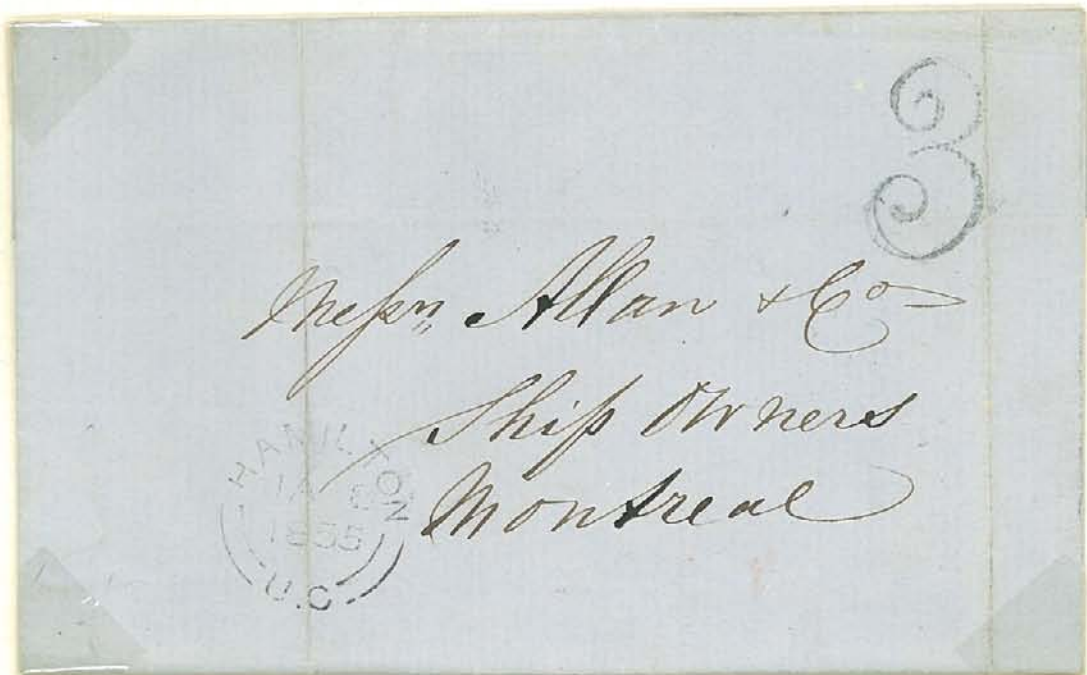 3
Messrs Allan & Co
Ship Owners
Montreal
HAMILTON
1855
U.C.